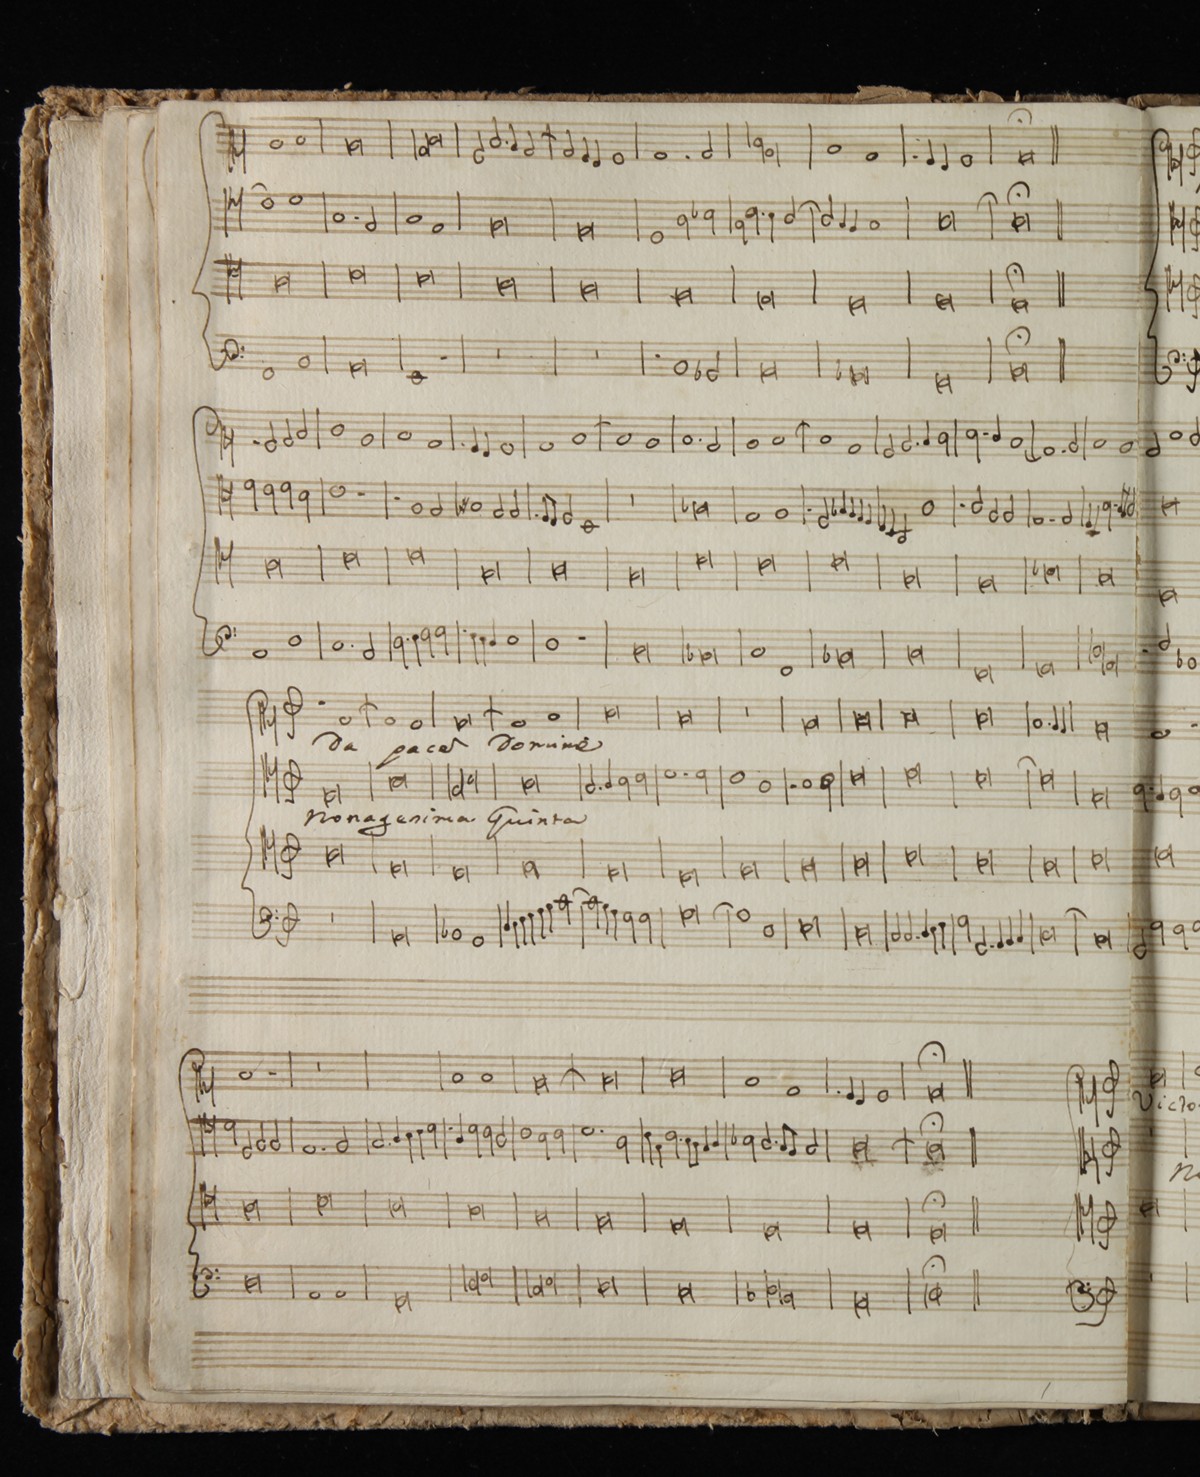 Da pacem Domine
Nonagesima Quinta
Victo
N